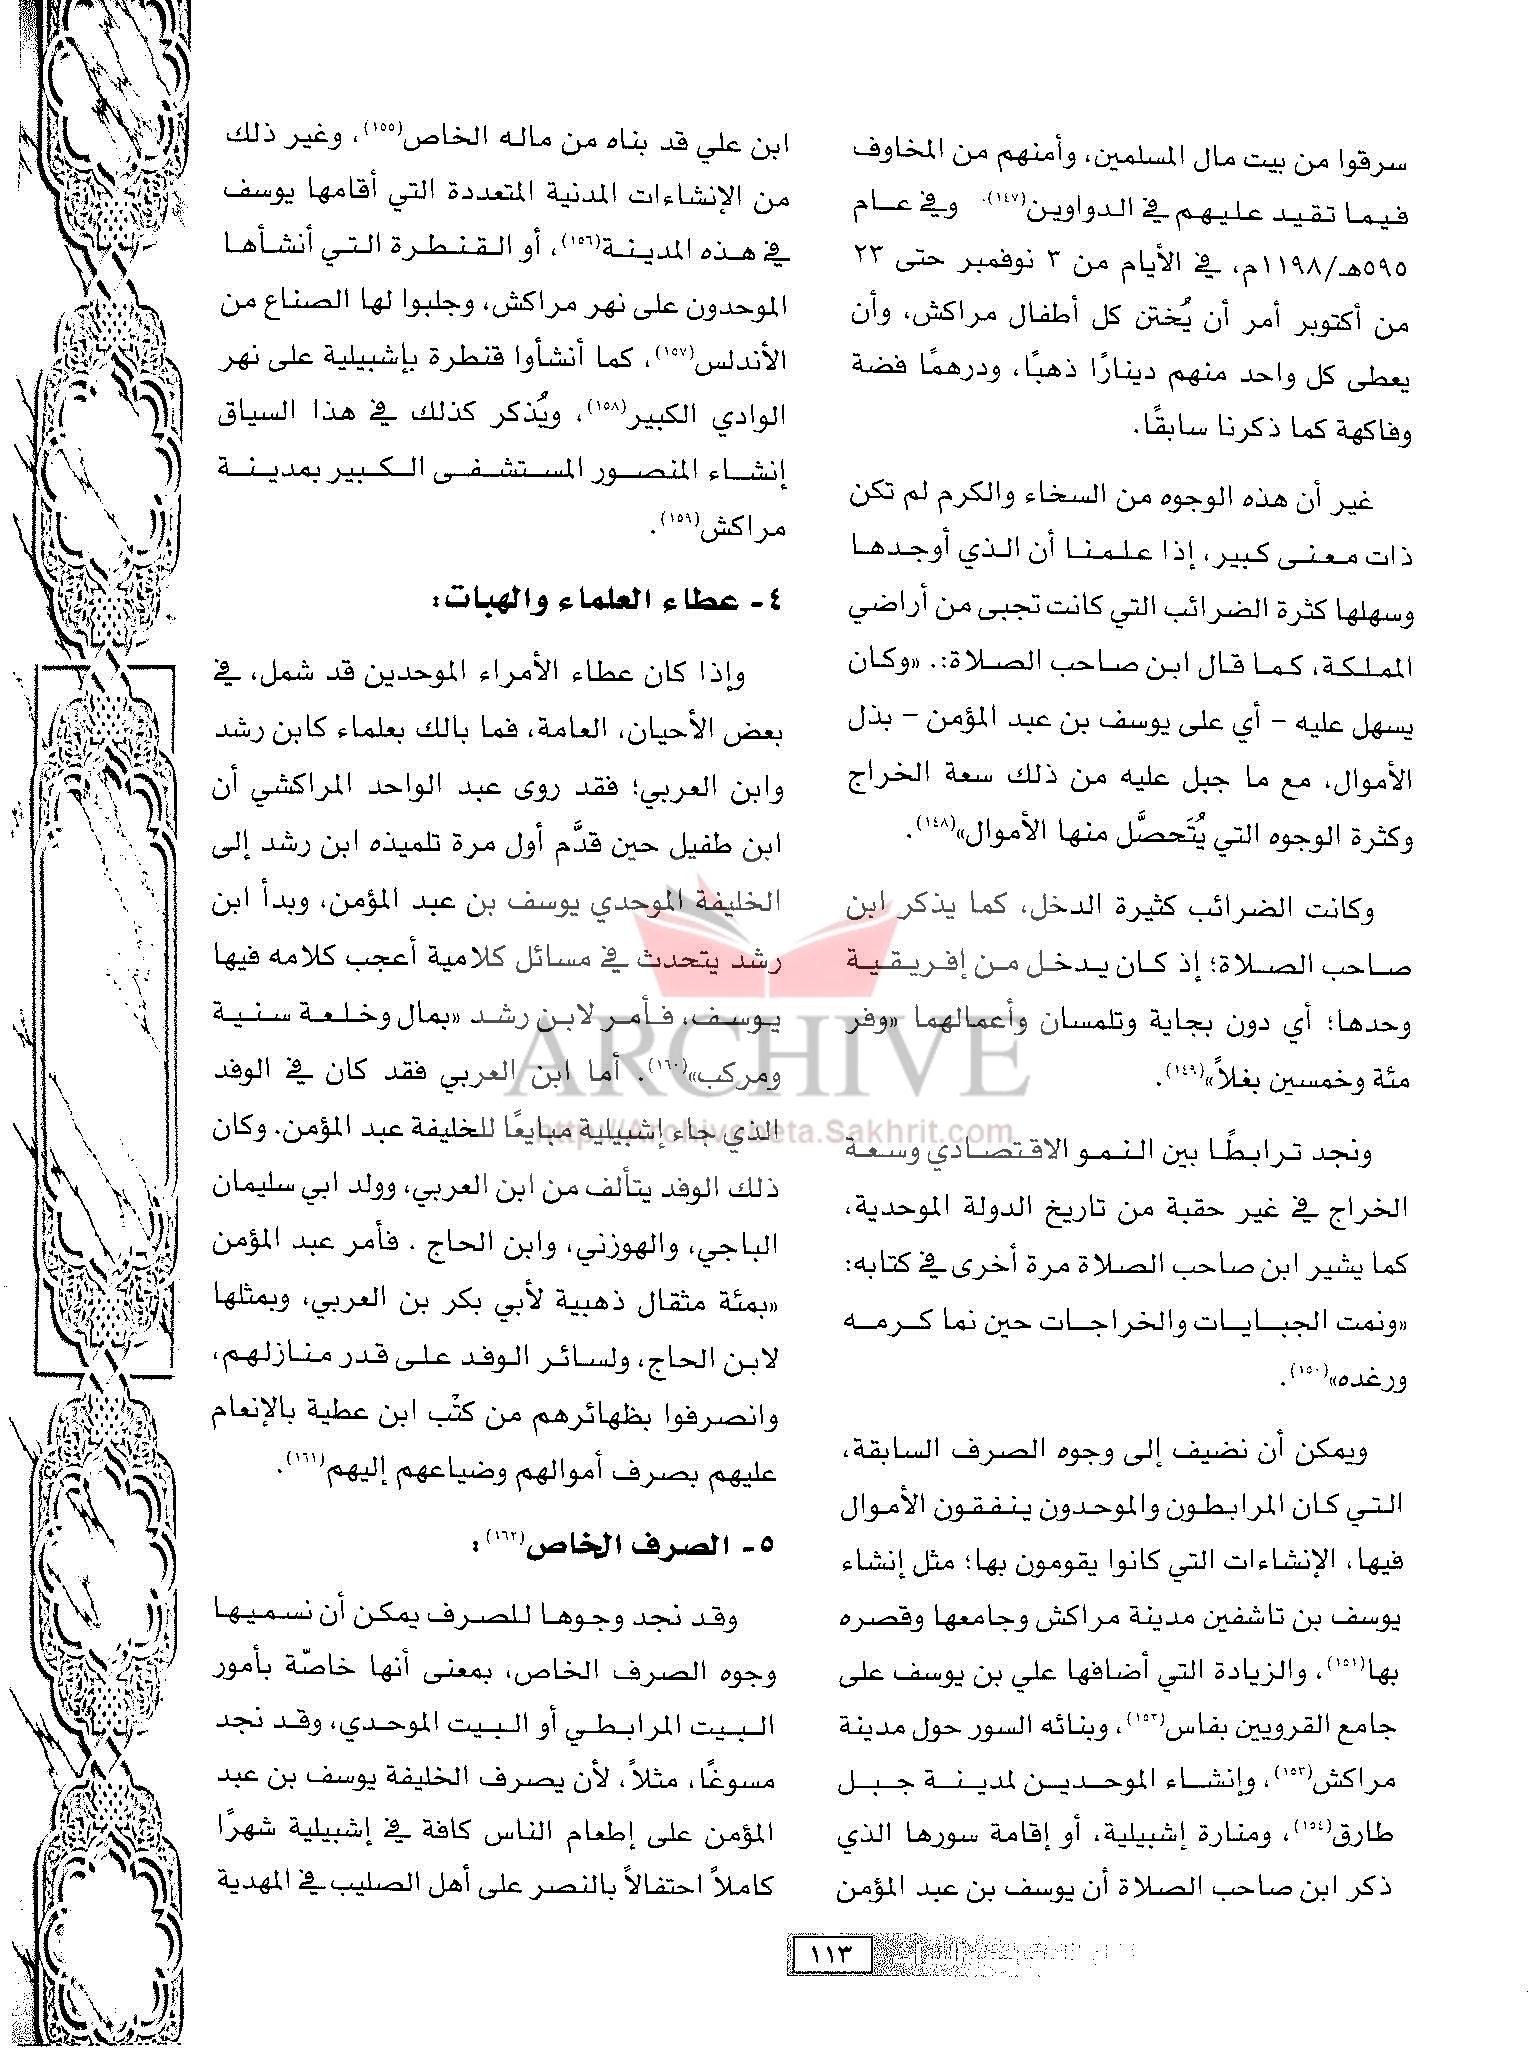 سرقوا من بيت مال المسلمين، وأمنهم من المخاوف
فيما تقيد عليهم في الدواوين(١٤٧). وفي عام
٥٩٥هـ/١١٩٨م، في الأيام من ٣ نوفمبر حتى ٢٣
من أكتوبر أمر أن يُختن كل أطفال مراكش، وأن
يعطى كل واحد منهم دينارًا ذهبًا، ودرهمًا فضة
وفاكهة كما ذكرنا سابقًا.
غير أن هذه الوجوه من السخاء والكرم لم تكن
ذات معنى كبير، إذا علمنا أن الذي أوجدها
وسهلها كثرة الضرائب التي كانت تجبى من أراضي
المملكة، كما قال ابن صاحب الصلاة:. «وكان
يسهل عليه – أي على يوسف بن عبد المؤمن – بذل
الأموال، مع ما جبل عليه من ذلك سعة الخراج
وكثرة الوجوه التي يُتَحصَّل منها الأموال»(١٤٨).
وكانت الضرائب كثيرة الدخل، كما يذكر ابن
صاحب الصلاة؛ إذ كان يدخل من إفريقية
وحدها؛ أي دون بجاية وتلمسان وأعمالهما «وفر
مئة وخمسين بغلاً»(١٤٩).
ونجد ترابطًا بين النمو الاقتصادي وسعة
الخراج في غير حقبة من تاريخ الدولة الموحدية،
كما يشير ابن صاحب الصلاة مرة أخرى في كتابه:
«ونمت الجبايات والخراجات حين نما كرمه
ورغده»(١٥٠).
ويمكن أن نضيف إلى وجوه الصرف السابقة،
التي كان المرابطون والموحدون ينفقون الأموال
فيها، الإنشاءات التي كانوا يقومون بها؛ مثل إنشاء
يوسف بن تاشفين مدينة مراكش وجامعها وقصره
بها(١٥١)، والزيادة التي أضافها علي بن يوسف على
جامع القرويين بفاس(١٥٢)، وبنائه السور حول مدينة
مراكش(١٥٣)، وإنشاء الموحدين لمدينة جبل
طارق(١٥٤)، ومنارة إشبيلية، أو إقامة سورها الذي
ذكر ابن صاحب الصلاة أن يوسف بن عبد المؤمن
ابن علي قد بناه من ماله الخاص(١٥٥)، وغير ذلك
من الإنشاءات المدنية المتعددة التي أقامها يوسف
في هذه المدينة(١٥٦)، أو القنطرة التي أنشأها
الموحدون على نهر مراكش، وجلبوا لها الصناع من
الأندلس(١٥٧)، كما أنشأوا قنطرة بإشبيلية على نهر
الوادي الكبير(١٥٨)، ويُذكر كذلك في هذا السياق
إنشاء المنصور المستشفى الكبير بمدينة
مراكش(١٥٩).
٤- عطاء العلماء والهبات:
وإذا كان عطاء الأمراء الموحدين قد شمل، في
بعض الأحيان، العامة، فما بالك بعلماء كابن رشد
وابن العربي؛ فقد روى عبد الواحد المراكشي أن
ابن طفيل حين قدَّم أول مرة تلميذه ابن رشد إلى
الخليفة الموحدي يوسف بن عبد المؤمن، وبدأ ابن
رشد يتحدث في مسائل كلامية أعجب كلامه فيها
يوسف، فأمر لابن رشد «بمال وخلعة سنية
ومركب»(١٦٠). أما ابن العربي فقد كان في الوفد
الذي جاء إشبيلية مبايعًا للخليفة عبد المؤمن. وكان
ذلك الوفد يتألف من ابن العربي، وولد ابي سليمان
الباجي، والهوزني، وابن الحاج . فأمر عبد المؤمن
«بمئة مثقال ذهبية لأبي بكر بن العربي، وبمثلها
لابن الحاج، ولسائر الوفد على قدر منازلهم،
وانصرفوا بظهائرهم من كتْب ابن عطية بالإنعام
عليهم بصرف أموالهم وضياعهم إليهم(١٦١).
٥- الصرف الخاص(١٦٢):
وقد نجد وجوها للصرف يمكن أن نسميها
وجوه الصرف الخاص، بمعنى أنها خاصّة بأمور
البيت المرابطي أو البيت الموحدي، وقد نجد
مسوغًا، مثلاً، لأن يصرف الخليفة يوسف بن عبد
المؤمن على إطعام الناس كافة في إشبيلية شهرًا
كاملاً احتفالاً بالنصر على أهل الصليب في المهدية
ARCHIVE
http://Archivebeta.Sakhrit.com
١١٣